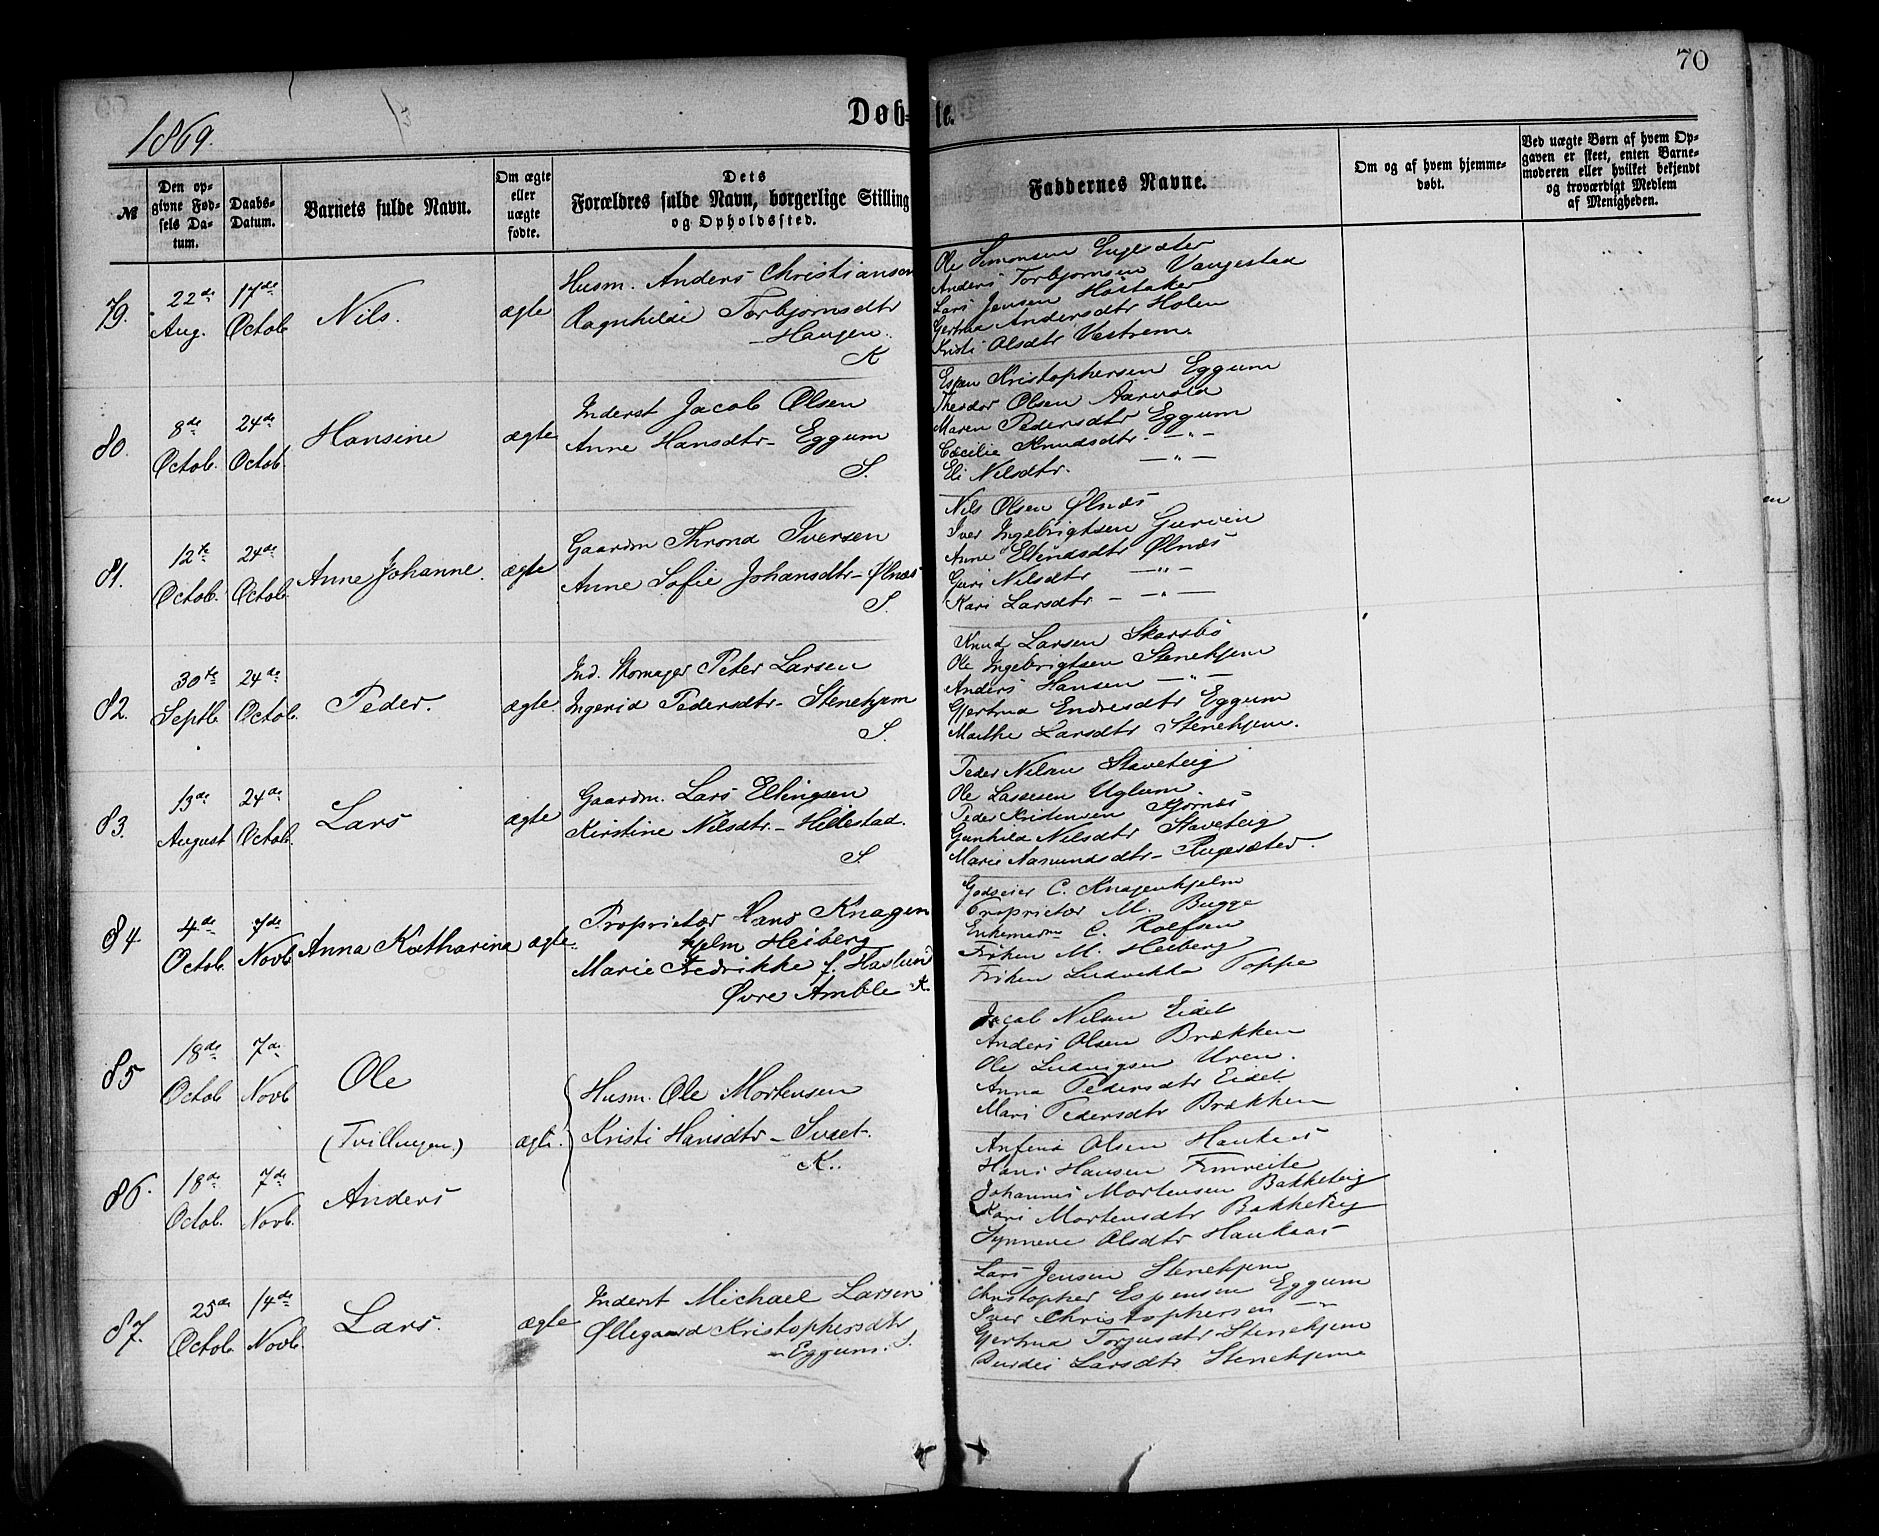 70
1869.
Døb-te.
№
Den opgivne Fødsels Datum.
Daabs-Datum.
Barnets fulde Navn.
Om ægte eller uægte fødte.
Dets Forældres fulde Navn, borgerlige Stilling og Opholdssted.
Faddernes Navne.
Om og af hvem hjemmedøbt.
Ved uægte Børn af hvem Opgaven er skeet, enten Barnemoderen eller hvilket bekjendt og troværdigt Medlem af Menigheden.
79.
22de Aug.
17de Octob.
Nils.
ægte
Husm. Anders Christiansen
Ragnhilde Torbjørnsdtr
- Haugen.
K
Ole Simonsen
Anders Torbjørnsen Vangestad
Lars Jensen Høstaker
Gertrud Andersdtr Holen
Kristi Olsdtr Vestrem.
80.
8de Octob.
24de Octob.
Hansine
ægte
Inderst Jacob Olsen
Anne Hansdtr - Eggum
S.
Espen Kristophersen Eggum
Theodor Olsen Aarvold
Maren Pedersdtr Eggum
Cæcilie Knudsdtr - " -
Eli Nilsdtr. - " -
81.
12te Octob.
24de Octob.
Anne Johanne.
ægte
Gaardm Thrond Iversen
Anne Sofie Johansdtr - Ølnæs
S.
Nils Olsen Ølnæs
Iver Ingebrigtsen Gurvin
Anne Ellendsdtr Ølnæs
Guri Nilsdtr - " -
Kari Larsdtr - - " -
82.
30te Septb.
24de Octob.
Peder.
ægte.
Ind. Skomager Peter Larsen
Ingerid Pedersdtr - Stenehjem
S.
Knud Larsen Skarsbø
Ole Ingebrigtsen Stenehjem
Anders Hansen - " -
Gjertrud Endresdtr Eggum
Marthe Larsdtr Stenehjem.
83.
13de August
24de Octob.
Lars
ægte
Gaardm. Lars Ellingsen
Kirstine Nilsdtr - Hillestad.
S.
Peder Nilsen Staveteig
Ole Lassesen Uglum.
Peder Kristensen Kjørnes
Gunhild Nilsdtr Staveteig
Marie Aamundsdtr -
84
4de Octob.
7de Novb
Anna Katharina
ægte.
Proprietær Hans Knagen
hjelm Heiberg
Marie Fredrikke f. Haslund
Øvre Amble K.
Godseier C. Knagenhjelm
Proprietær M. Bugge
Enkemadm C. Rolfsen
Frøken M. Heiberg
Frøken Ludvikka Poppe
85
18de Octob
7de Novb
Ole
(Tvillingen)
ægte.
Husm. Ole Mortensen
Kristi Hansdtr - Svæet.
K.
Jacob Nilsen Eidet
Anders Olsen Brækken
Ole Ludvigsen Uren.
Anna Pedersdtr Eidet
Mari Pedersdtr Brækken
86.
18de Octob.
7de Novb.
Anders
Anfind Olsen Haukaas
Hans Hansen Timreite
Johannes Mortensen Bakketeig
Kari Mortensdtr Bakketeig
Synneve Olsdtr Haukaas
87.
25de Octob.
14de Novb.
Lars.
ægte
Inderst Michael Larsen
Øllegaard Kristophersdtr
- Eggum. S
Lars Jensen Stenehjem
Christopher Espensen Eggum
Iver Christophersen - " -
Gjertrud Torjusdtr Stenehjem
Durdei Larsdtr. Stenehjem